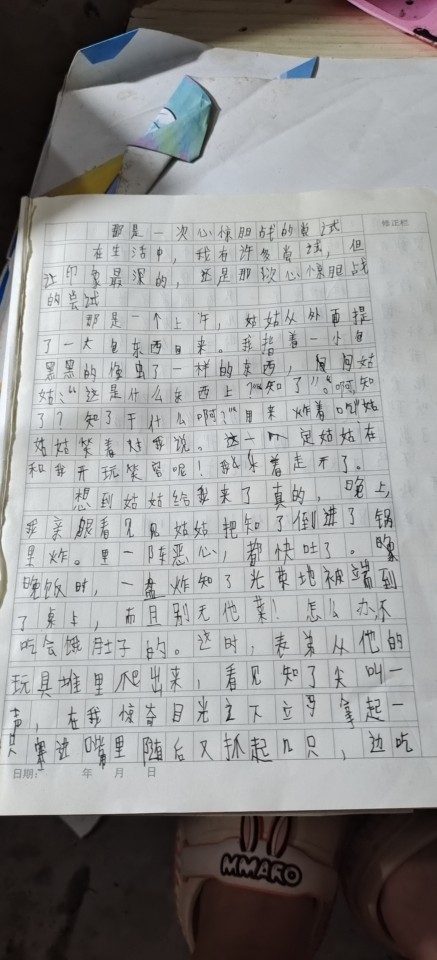 修正栏
那是一次心惊胆战的尝试
在生活中，我有许多尝试，但
让印象最深的，还是那次心惊胆战
的尝试
那是一个上午，姑姑从外面提
了一大包东西回来。我指着一小包
黑黑的像虫了一样的东西，问姑
姑：“这是什么东西上？”“知了！”“啊，知
了？知了干什么啊？”“用来炸着吃”姑
姑姑笑着对我说。这一定姑姑在
和我开玩笑呢！我笑着走开了。
想到姑姑给我来了真的，晚上，
我亲眼看见见姑姑把知了倒进了锅
里炸。里一阵恶心，都快吐了。晚
晚饭时，一盘炸知了光荣地被端到
了桌上，而且别无他菜！怎么办，不
吃会饿肚子的。这时，表弟从他的
玩具堆里爬出来，看见知了尖叫一
声，在我惊奇目光之下立马拿起一
只塞进嘴里随后又抓起几只，边吃
日期： 年 月 日
MMARO